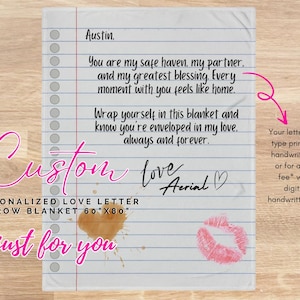 Austin,
You are my safe haven, my partner,
and my greatest blessing. Every
moment with you feels like home.
Wrap yourself in this blanket and
know you're enveloped in my love,
always and forever.
Love
Aerial
Your lette
type prin
handwrit
or for a
fee* w
digit
handwritt
Custom
ONALIZED LOVE LETTER
OW BLANKET 60"X80"
just for you